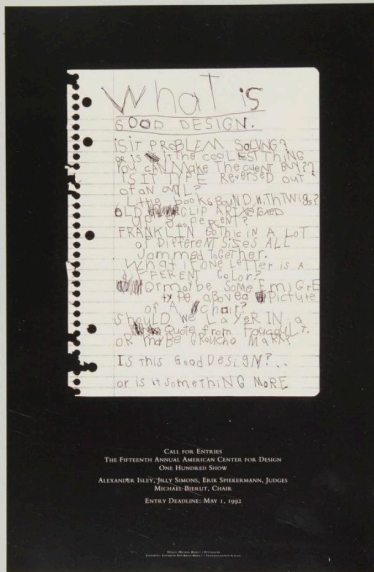 What is
GOOD DESIGN.
is it PROBLEM SOLVING?
or is it the cOOLEST THING
You can MAKE The cLIENT BUY??
IS IT TYPE REVERSED OUT
of an OVAL?
LITTLE BOOKS BOUND WITH TWIGS?
OLD CLIP ART
FRANKLIN GOTHIC IN A LOT
of DiffERENT SiZES ALL
Jammed TogetHer.
WHAT if ONE LETTER is A
DiffERENT COLOR?
OR maybe SOME EmiGRE
type ApovEa Picture
of A chair?
SHOULD WE LAYER IN a
Quote from FOUCAULT.
OR MAYBE GROUCHO MARX?
IS This Good DESIGN?..
or is it someTHING MORE
CALL FOR ENTRIES
THE FIFTEENTH ANNUAL AMERICAN CENTER FOR DESIGN
ONE HUNDRED SHOW
ALEXANDER ISLEY, JILLY SIMONS, ERIK SPIEKERMANN, JUDGES
MICHAEL BIERUT, CHAIR
ENTRY DEADLINE: MAY 1, 1992